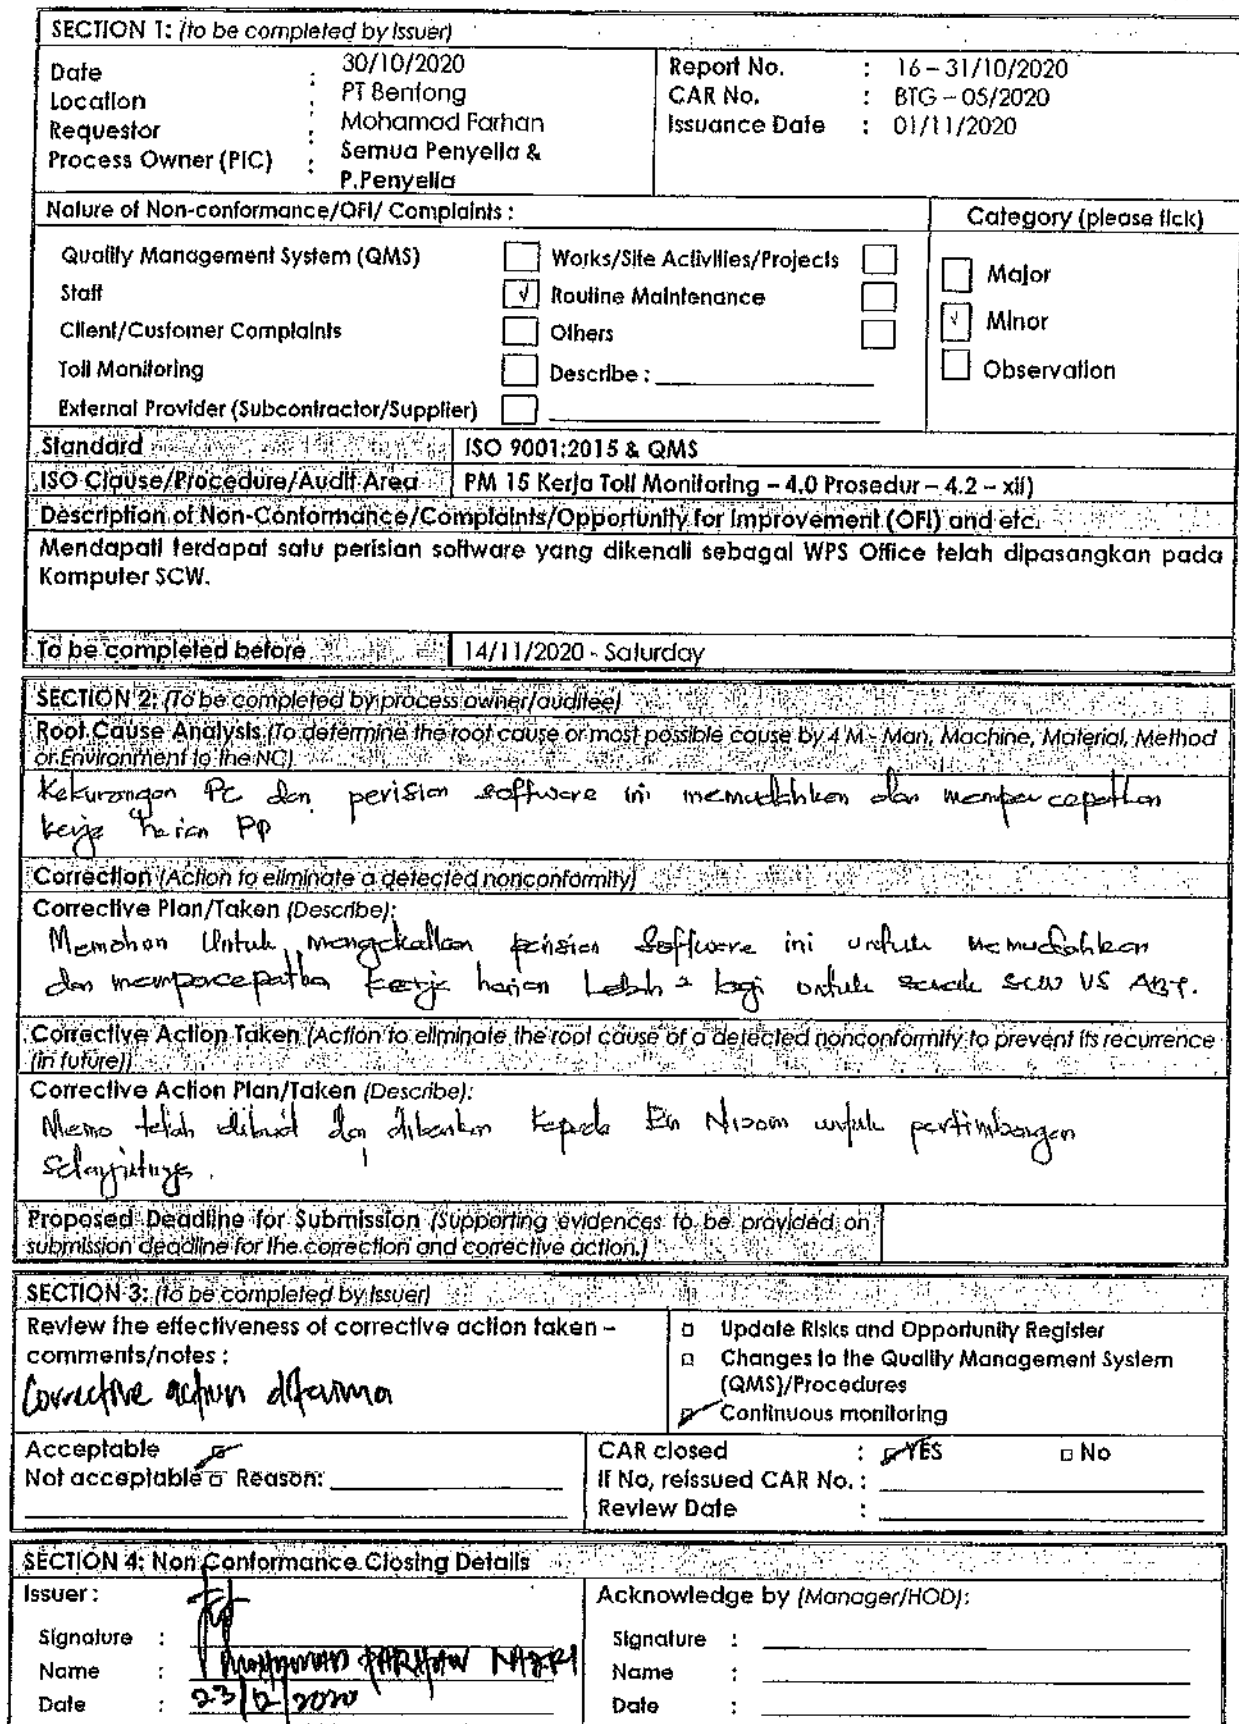 SECTION 1: (to be completed by Issuer)
Date : 30/10/2020
Location : PT Bentong
Requestor : Mohamad Farhan
Process Owner (PIC) : Semua Penyelia &
P.Penyelia
Report No. : 16 – 31/10/2020
CAR No. : BTG – 05/2020
Issuance Date : 01/11/2020
Nature of Non-conformance/OFI/ Complaints :
Category (please tick)
Quality Management System (QMS)
Works/Site Activities/Projects
Staff √
Routine Maintenance
Client/Customer Complaints
Others
Toll Monitoring
Describe :
External Provider (Subcontractor/Supplier)
Major
√ Minor
Observation
Standard ISO 9001:2015 & QMS
ISO Clause/Procedure/Audit Area PM 15 Kerja Toll Monitoring – 4.0 Prosedur – 4.2 – xii)
Description of Non-Conformance/Complaints/Opportunity for Improvement (OFI) and etc.
Mendapati terdapat satu perisian software yang dikenali sebagai WPS Office telah dipasangkan pada
Komputer SCW.
To be completed before 14/11/2020 - Saturday
SECTION 2: (To be completed by process owner/auditee)
Root Cause Analysis (To determine the root cause or most possible cause by 4 M - Man, Machine, Material, Method
or Environment to the NC)
Kekurangan PC dan perisian software ini memudahkan dan mempercepatkan
kerja harian PP
Correction (Action to eliminate a detected nonconformity)
Corrective Plan/Taken (Describe):
Memohon Untuk mengekalkan perisian Software ini untuk memudahkan
dan mempercepatkan kerja harian Lebih 2 lagi untuk semak SCW VS
Corrective Action Taken (Action to eliminate the root cause of a detected nonconformity to prevent its recurrence
(in future))
Corrective Action Plan/Taken (Describe):
Memo telah dibuat dan diberikan kepada En Nizam untuk pertimbangan
Selanjutnya.
Proposed Deadline for Submission (Supporting evidences to be provided on
submission deadline for the correction and corrective action.)
SECTION 3: (to be completed by Issuer)
Review the effectiveness of corrective action taken –
comments/notes :
Corrective action diterima
Update Risks and Opportunity Register
Changes to the Quality Management System
(QMS)/Procedures
Continuous monitoring
Acceptable
Not acceptable Reason:
CAR closed : YES No
If No, reissued CAR No. :
Review Date :
SECTION 4: Non Conformance Closing Details
Issuer :
Signature :
Name : FARHAN NAZRI
Date : 23/12/2020
Acknowledge by (Manager/HOD):
Signature :
Name :
Date :